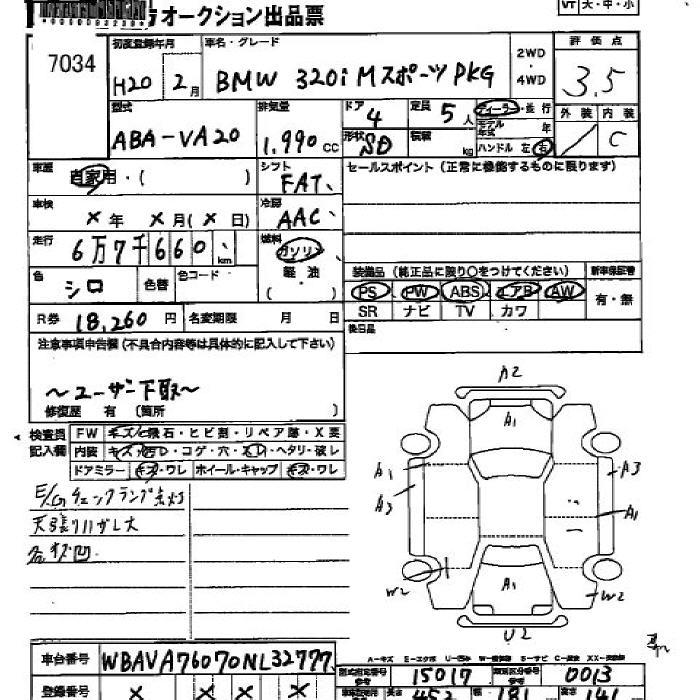 オークション出品票
VT 大・中・小
7034
初度登録年月 H20 2月
車名・グレード BMW 320i Mスポーツ PKG
2WD・4WD
評価点 3.5
型式 ABA-VA20
排気量 1,990cc
ドア 4
定員 5人
形状 SD
積載 kg
ディーラー・並行
モデル年式 年
ハンドル 左 右
外装 内装 C
車歴 自家用・( )
シフト FAT
セールスポイント (正常に機能するものに限ります)
車検 ×年 ×月(×日)
冷房 AAC
走行 6万7千660km
燃料 ガソリン 軽油 ( )
色 シロ 色替 色コード
装備品 (純正品に限り○をつけてください) 新車保証書
PS PW ABS エアB AW 有・無
SR ナビ TV カワ
R券 18,260円 名変期限 月 日
後日品
注意事項申告欄 (不具合内容等は具体的に記入して下さい)
~ユーザー下取~
修復歴 有 (箇所 )
検査員記入欄
FW キズ・飛石・ヒビ割・リペア跡・X要
内装 キズ・汚レ・コゲ・穴・スレ・ヘタリ・破レ
ドアミラー キズ・ワレ ホイール・キャップ キズ・ワレ
E/Gチェックランプ点灯
天張リハガレ大
各キズ凹
A2
A1
A1 A3
A3 A1
A1
W2 W2
U2
A-キズ E-エクボ U-凹み W-補修跡 S-サビ C-腐食 XX-交換済
車台番号 WBAVA76070NL32777
型式指定番号 15017 類別区分番号 0013
登録番号 × × × ×
長さ 452 幅 181 高さ 141